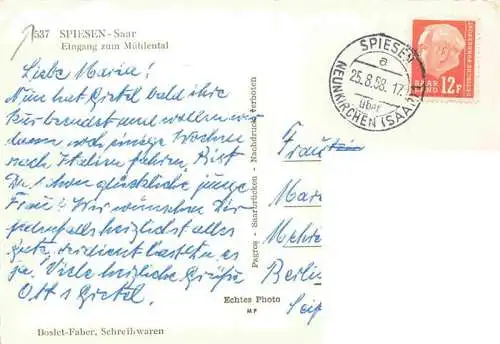 537 SPIESEN - Saar
Eingang zum Mühlental
Liebe Marion!
Nun hat Gretel bald ihre
Kur beendet und wollen wir
dann noch einige Wochen
nach Italien fahren. Bist
Du schon glückliche junge
Frau? Wir wünschen Dir
jedenfalls herzlichst alles
Gute, verdient hast Du es
ja. Viele herzliche Grüße
Ott & Gretel.
Boslet-Faber, Schreibwaren
Pagros - Saarbrücken - Nachdruck verboten
Echtes Photo
MF
SPIESEN
a
25.8.58. 17
über
NEUNKIRCHEN (SAAR)
SAAR
LAND
12F
DEUTSCHE BUNDESPOST
Frau
Mari
Mehr
Berlin